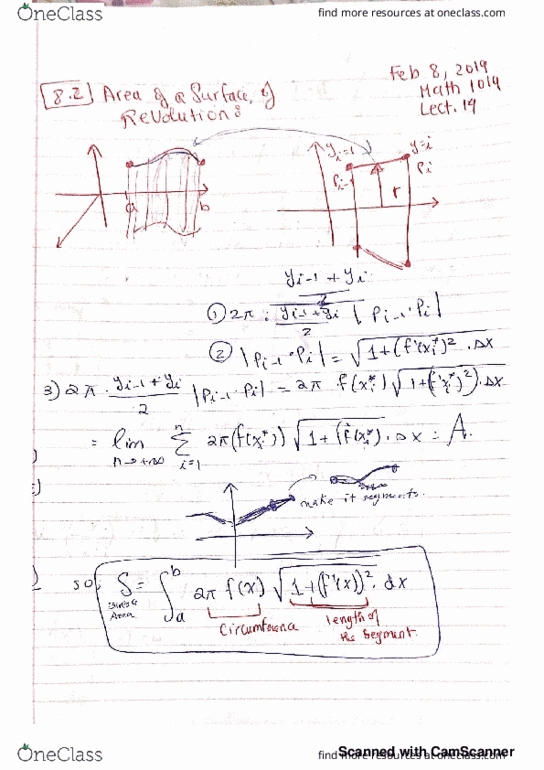 OneClass
find more resources at oneclass.com
Feb 8, 2019
Math 1014
Lect. 19
8.2 Area of a Surface of
Revolution:
y_{i-1} y=i
P_{i-1} P_i
r
a b
y_{i-1} + y_i
2
① 2π · \frac{y_{i-1} + y_i}{2} |P_{i-1} · P_i|
② |P_{i-1} · P_i| = √(1+(f'(x_i^*)² · Δx
3) 2π · \frac{y_{i-1} + y_i}{2} |P_{i-1} · P_i| = 2π f(x_i^*) √(1+(f'x_i^*)²) · Δx
= lim_{n→+∞} Σ_{i=1}^{n} 2π(f(x_i^*)) √(1+(f'(x_i^*)) · Δx = A.
make it segments.
so, S = ∫_a^b 2π f(x) √(1+(f'(x))² · dx
Surface
Area
Circumference
length of
the segment.
OneClass
find more resources at oneclass.com
Scanned with CamScanner